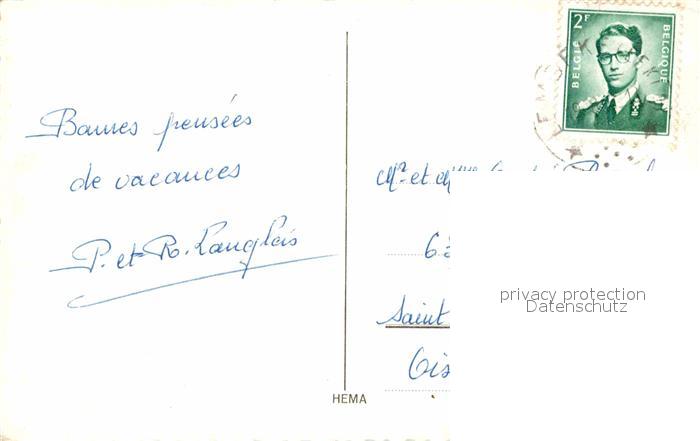 Bonnes pensées
de vacances
P. et R. Langlais
HEMA
2F
BELGIE
BELGIQUE
Mr et Mme
6
Saint
Ois
privacy protection
Datenschutz